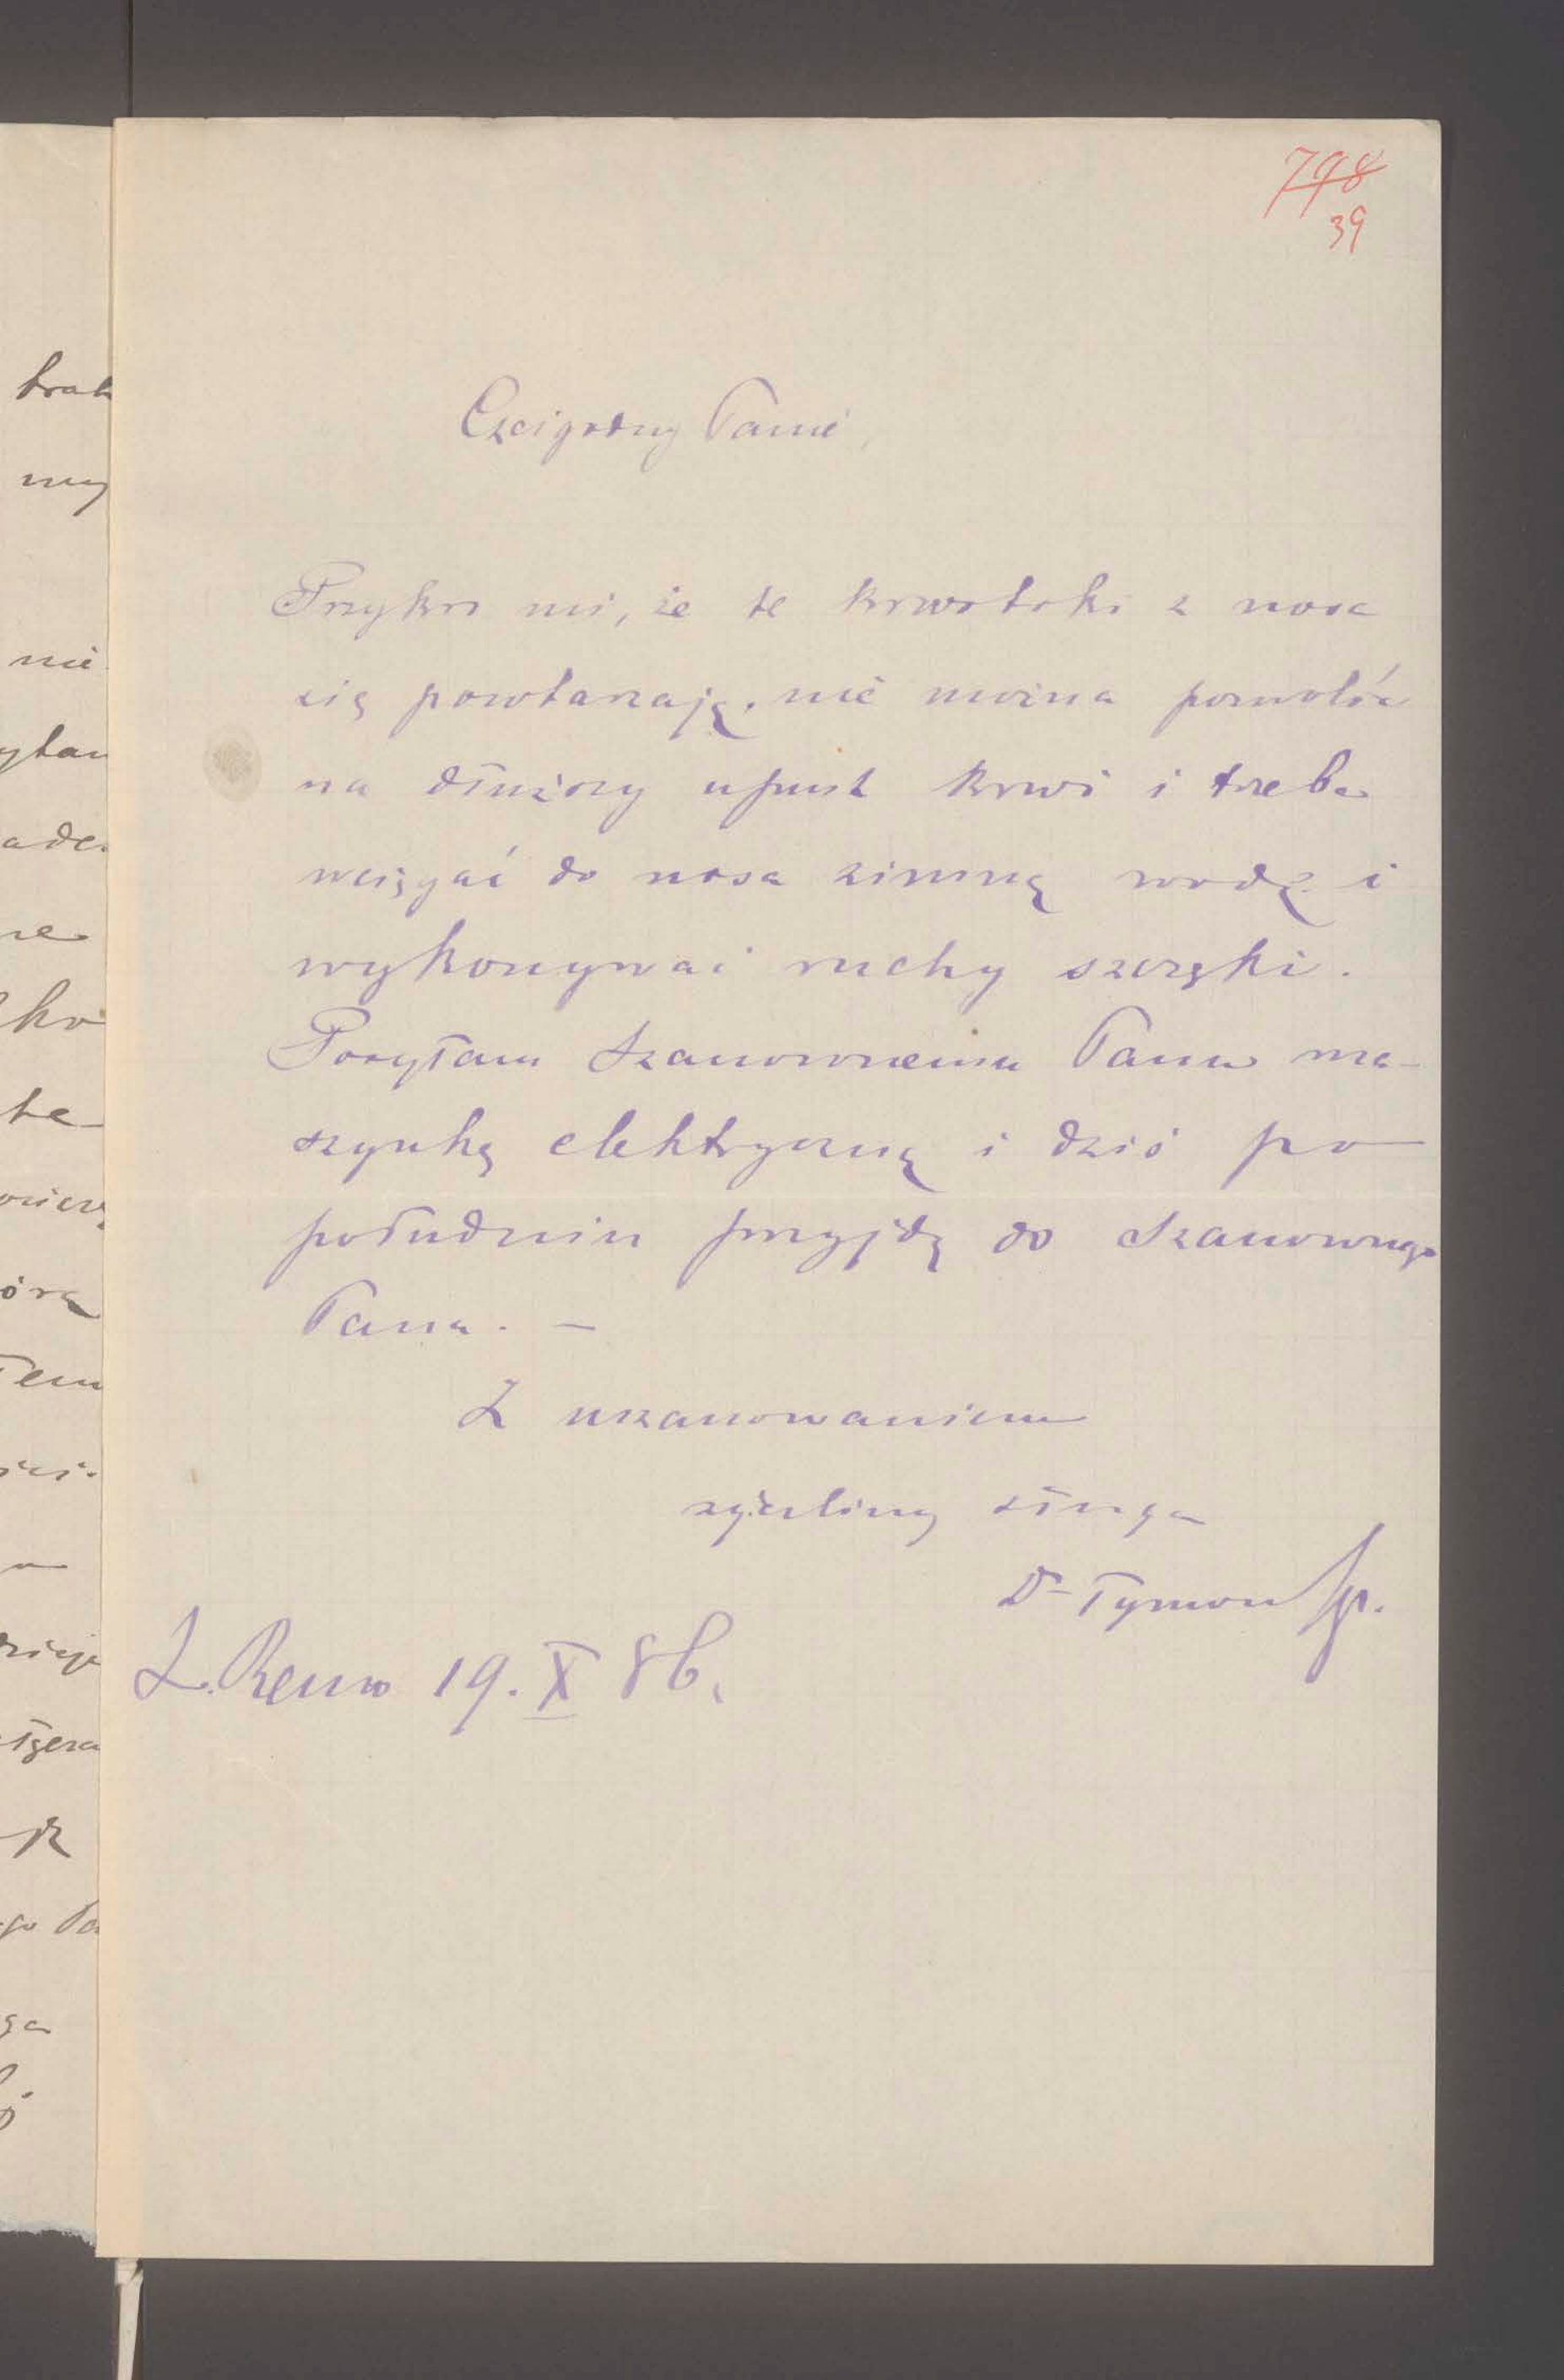 798
39
Czcigodny Panie,
Przykro mi, że te krwotoki z nosa
się powtarzają. nie można pozwolić
na dłuższy upust krwi i trzeba
wciągać do nosa zimną wodę i
wykonywać ruchy szczęki.
Posyłam Szanownemu Panu ma-
szynkę elektryczną i dziś po
południu przyjdę do Szanownego
Pana. —
Z uszanowaniem
życzliwy sługa
Dr Tymon
S. Remo 19. X 86.